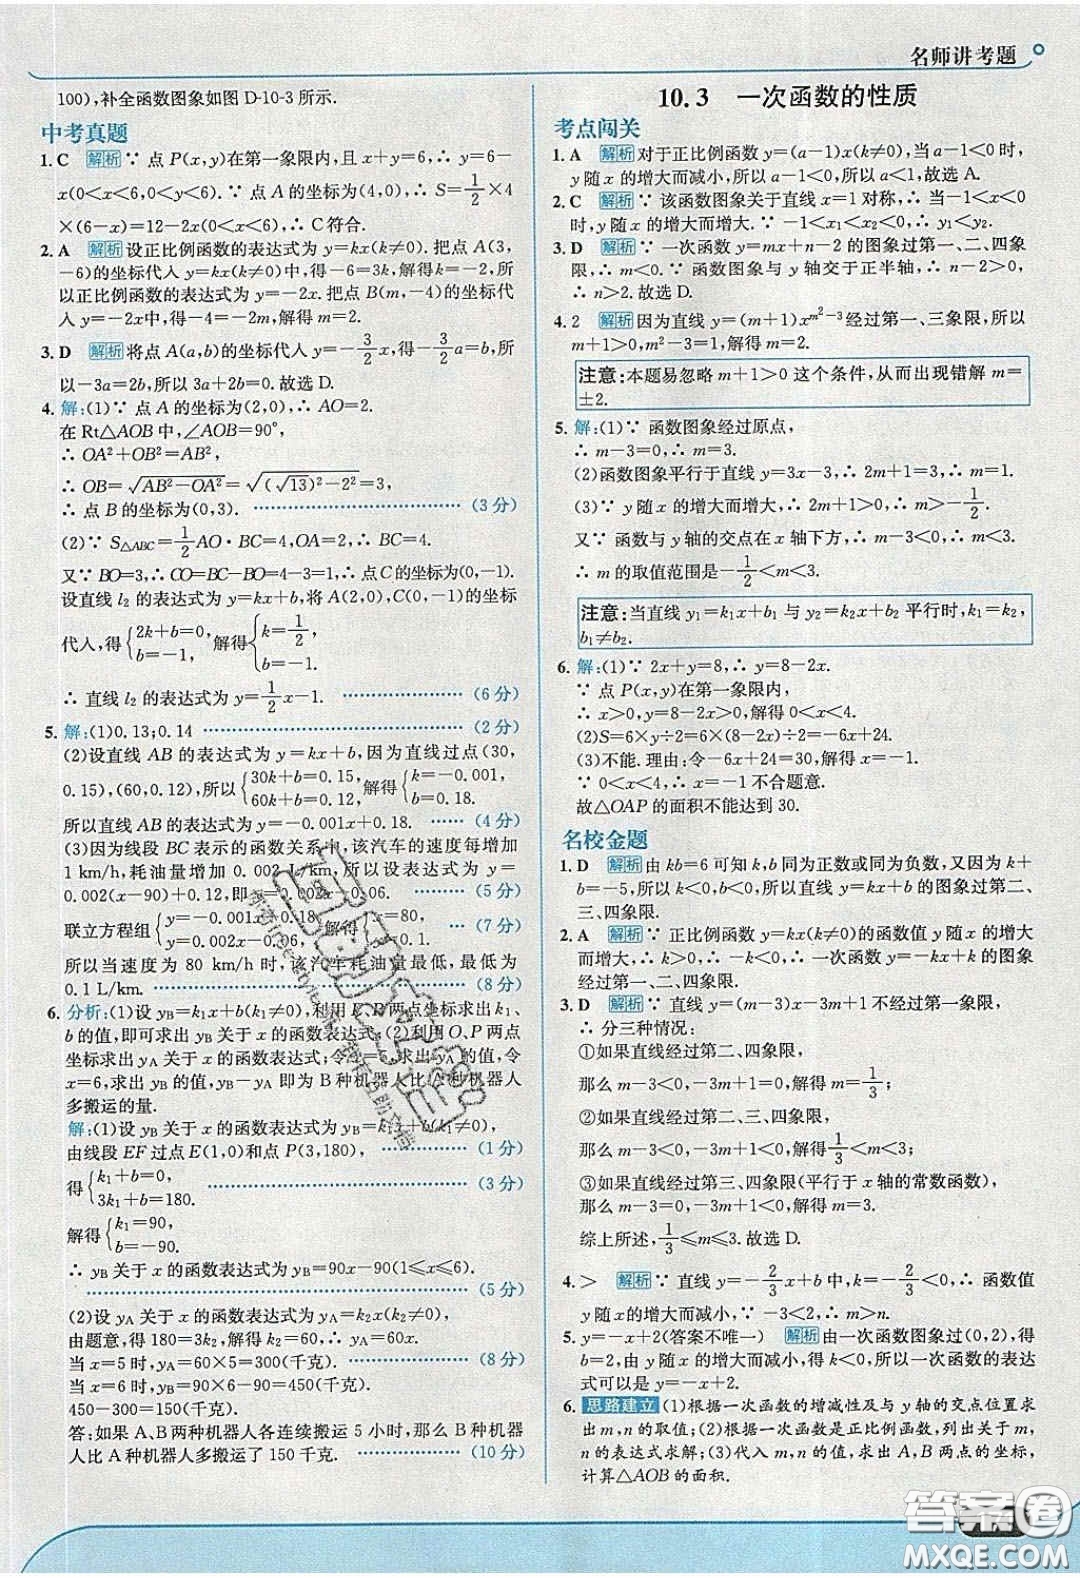 名师讲考题
100),补全函数图象如图 D-10-3 所示.
中考真题
1. C 解析 ∵ 点 P(x,y)在第一象限内,且 x+y=6,∴ y=6-
x(0<x<6,0<y<6).∵ 点 A 的坐标为(4,0),∴ S=1/2×4
×(6-x)=12-2x(0<x<6),∴ C符合.
2. A 解析 设正比例函数的表达式为 y=kx(k≠0). 把点 A(3,
-6)的坐标代入 y=kx(k≠0)中,得-6=3k,解得 k=-2,所
以正比例函数的表达式为 y=-2x. 把点 B(m,-4)的坐标代
入 y=-2x中,得-4=-2m,解得 m=2.
3. D 解析 将点 A(a,b)的坐标代入 y=-3/2x,得-3/2a=b,所
以-3a=2b,所以 3a+2b=0.故选 D.
4. 解:(1)∵ 点 A 的坐标为(2,0),∴ AO=2.
在 Rt△AOB 中,∠AOB=90°,
∴ OA²+OB²=AB²,
∴ OB=√(AB²-OA²)=√((√13)²-2²)=3,
∴ 点 B 的坐标为(0,3). (3 分)
(2)∵ S△ABC=1/2AO·BC=4,OA=2,∴ BC=4.
又∵ BO=3,∴ CO=BC-BO=4-3=1,∴ 点C的坐标为(0,-1).
设直线 l₂ 的表达式为 y=kx+b,将 A(2,0),C(0,-1)的坐标
代入,得{2k+b=0, b=-1, 解得{k=1/2, b=-1.
∴ 直线 l₂ 的表达式为 y=1/2x-1. (6 分)
5. 解:(1)0.13;0.14 (2 分)
(2)设直线 AB 的表达式为 y=kx+b,因为直线过点(30,
0.15),(60,0.12),所以{30k+b=0.15, 60k+b=0.12, 解得{k=-0.001, b=0.18.
所以直线 AB 的表达式为 y=-0.001x+0.18. (4 分)
(3)因为线段 BC 表示的函数关系中,该汽车的速度每增加
1 km/h,耗油量增加 0.002 L/km,所以线段 BC 的表达式为 y=
0.002(x-90)+0.12,即 y=0.002x-0.06. (5 分)
联立方程组{y=-0.001x+0.18, y=0.002x-0.06, 解得{x=80, y=0.1. (7 分)
所以当速度为 80 km/h 时,该汽车耗油量最低,最低为
0.1 L/km. (8 分)
6. 分析:(1)设 yB=k₁x+b(k₁≠0),利用 E,P两点坐标求出 k₁、
b 的值,即可求出 yB 关于 x 的函数表达式;(2)利用 O、P 两点
坐标求出 yA 关于 x 的函数表达式,令 x=6,求出 yA 的值,令
x=6,求出 yB 的值,yB-yA 即为 B 种机器人比 A 种机器人
多搬运的量.
解:(1)设 yB 关于 x 的函数表达式为 yB=k₁x+b(k₁≠0),
由线段 EF 过点 E(1,0)和点 P(3,180), (1 分)
得{k₁+b=0, 3k₁+b=180. (3 分)
解得{k₁=90, b=-90.
∴ yB 关于 x 的函数表达式为 yB=90x-90(1≤x≤6).
(5 分)
(2)设 yA 关于 x 的函数表达式为 yA=k₂x(k₂≠0),
由题意,得 180=3k₂,解得 k₂=60,∴ yA=60x.
当 x=5 时,yA=60×5=300(千克). (8 分)
当 x=6 时,yB=90×6-90=450(千克).
450-300=150(千克).
答:如果 A、B两种机器人各连续搬运 5 小时,那么 B 种机器
人比 A 种机器人多搬运了 150 千克. (10 分)
10.3 一次函数的性质
考点闯关
1. A 解析 对于正比例函数 y=(a-1)x(k≠0),当 a-1<0 时,
y 随 x 的增大而减小,所以 a-1<0,所以 a<1,故选 A.
2. C 解析 ∵ 该函数图象关于直线 x=1 对称,∴ 当 x<0
时,y 随 x 的增大而增大. ∵ -1<x₁<x₂<0,∴ y₁<y₂.
3. D 解析 ∵ 一次函数 y=mx+n-2 的图象过第一、二、四象
限,∴ m<0. ∵ 函数图象与 y 轴交于正半轴,∴ n-2>0,
∴ n>2. 故选 D.
4. 2 解析 因为直线 y=(m+1)x^(m²-3) 经过第一、三象限,所以
m+1>0,m²-3=1,解得 m=2.
注意:本题易忽略 m+1>0 这个条件,从而出现错解 m=
±2.
5. 解:(1)∵ 函数图象经过原点,
∴ m-3=0,∴ m=3.
(2)函数图象平行于直线 y=3x-3,∴ 2m+1=3,∴ m=1.
(3)∵ y 随 x 的增大而增大,∴ 2m+1>0,∴ m>-1/2.
又∵ 函数与 y 轴的交点在 x 轴下方,∴ m-3<0,∴ m<3.
∴ m 的取值范围是-1/2<m<3.
注意:当直线 y₁=k₁x+b₁ 与 y₂=k₂x+b₂ 平行时,k₁=k₂,
b₁≠b₂.
6. 解:(1)∵ 2x+y=8,∴ y=8-2x.
∵ 点 P(x,y)在第一象限内,
∴ x>0,y=8-2x>0,解得 0<x<4.
(2)S=6×y÷2=6×(8-2x)÷2=-6x+24.
(3)不能. 理由:令-6x+24=30,解得 x=-1,
∵ 0<x<4,∴ x=-1 不合题意.
故△OAP 的面积不能达到 30.
名校金题
1. D 解析 由 kb=6 可知 k,b 同为正数或同为负数,又因为 k+
b=-5,所以 k<0,b<0,所以直线 y=kx+b 的图象过第二、
三、四象限.
2. A 解析 ∵ 正比例函数 y=kx(k≠0)的函数值 y 随 x 的增大
而增大,∴ k>0,∴ -k<0,∴ 一次函数 y=-kx+k 的图象
经过第一、二、四象限.
3. D 解析 ∵ 直线 y=(m-3)x-3m+1 不经过第一象限,
∴ 分三种情况:
①如果直线经过第二、四象限,
那么 m-3<0,-3m+1=0,解得 m=1/3;
②如果直线经过第二、三、四象限,
那么 m-3<0,-3m+1<0,解得 1/3<m<3;
③如果直线经过第三、四象限(平行于 x 轴的常数函数),
那么 m-3=0,-3m+1<0,解得 m=3.
综上所述,1/3≤m≤3.故选 D.
4. > 解析 ∵ 直线 y=-2/3x+b 中,k=-2/3<0,∴ 函数值
y 随x的增大而减小,∵ -3<2,∴ m>n.
5. y=-x+2(答案不唯一) 解析 由一次函数图象过(0,2),得
b=2,由 y 随 x 的增大而减小,得 k<0,所以一次函数的表达
式可以是 y=-x+2.
6. 思路建立 (1)根据一次函数的增减性及与 y 轴的交点位置求
出 m,n 的取值;(2)根据一次函数是正比例函数,求出 m、
n 的表达式求解;(3)代入 m,n 的值,求出 A、B 两点的坐标,
计算△AOB 的面积.
答案圈
MXQE.COM